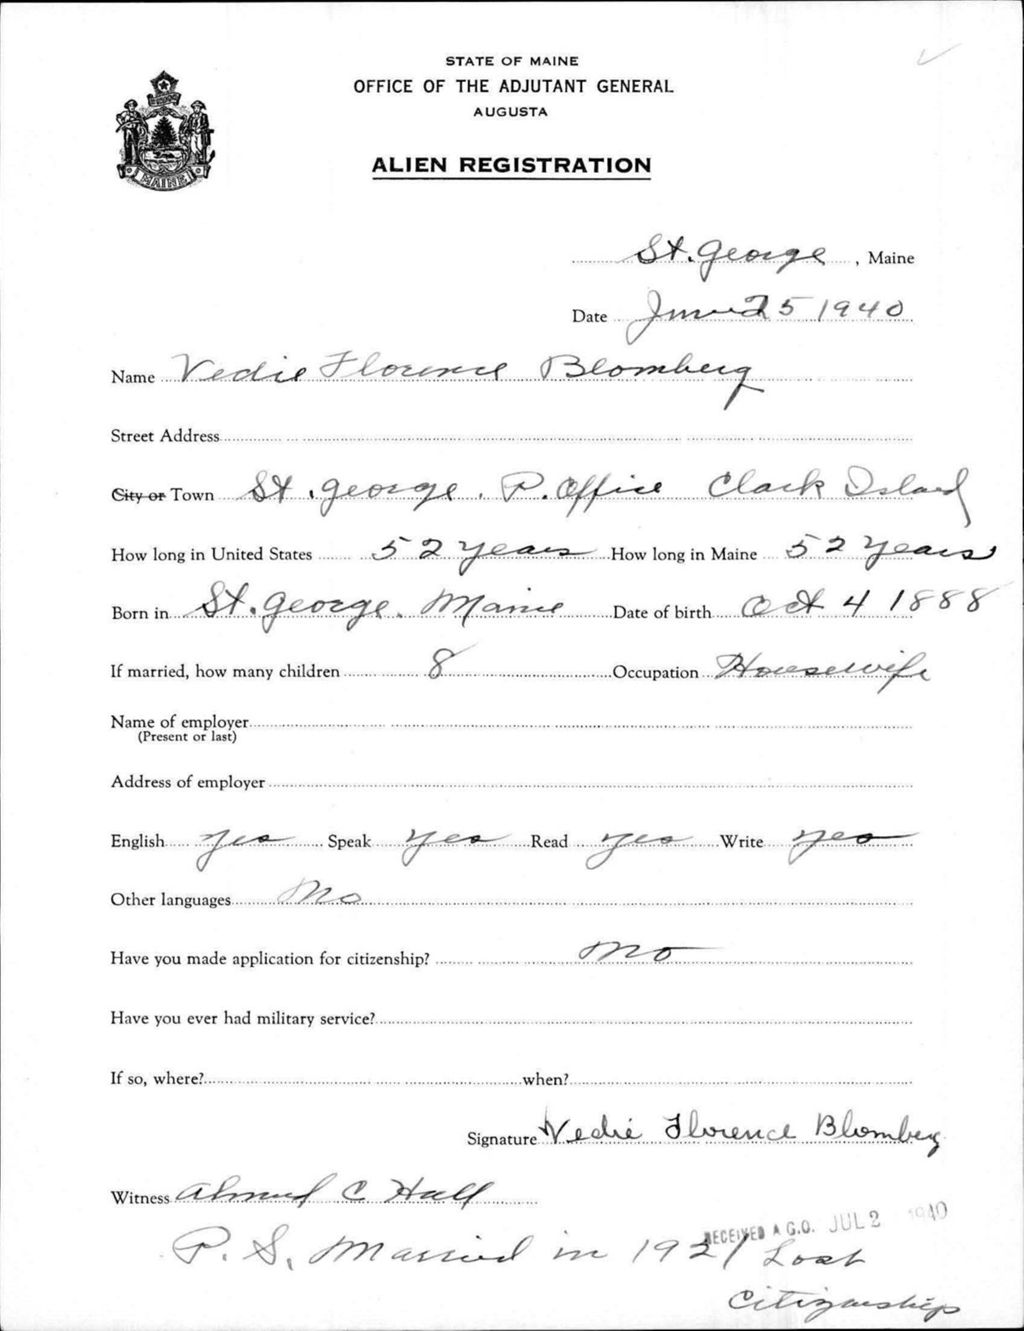 STATE OF MAINE
OFFICE OF THE ADJUTANT GENERAL
AUGUSTA
ALIEN REGISTRATION
MAINE
St. George, Maine
Date June 25 1940
Name Vedie Florence Blomberg
Street Address
City or Town St. George. P. Office Clark Island
How long in United States 52 years How long in Maine 52 years
Born in St. George. Maine Date of birth Oct 4 1888
If married, how many children 8 Occupation Housewife
Name of employer
(Present or last)
Address of employer
English Yes Speak Yes Read Yes Write Yes
Other languages No
Have you made application for citizenship? No
Have you ever had military service?
If so, where? when?
Signature Vedie Florence Blomberg
Witness C Hall
RECEIVED A.G.O. JUL 2 1940
P. S. Married in 1921 Lost
Citizenship